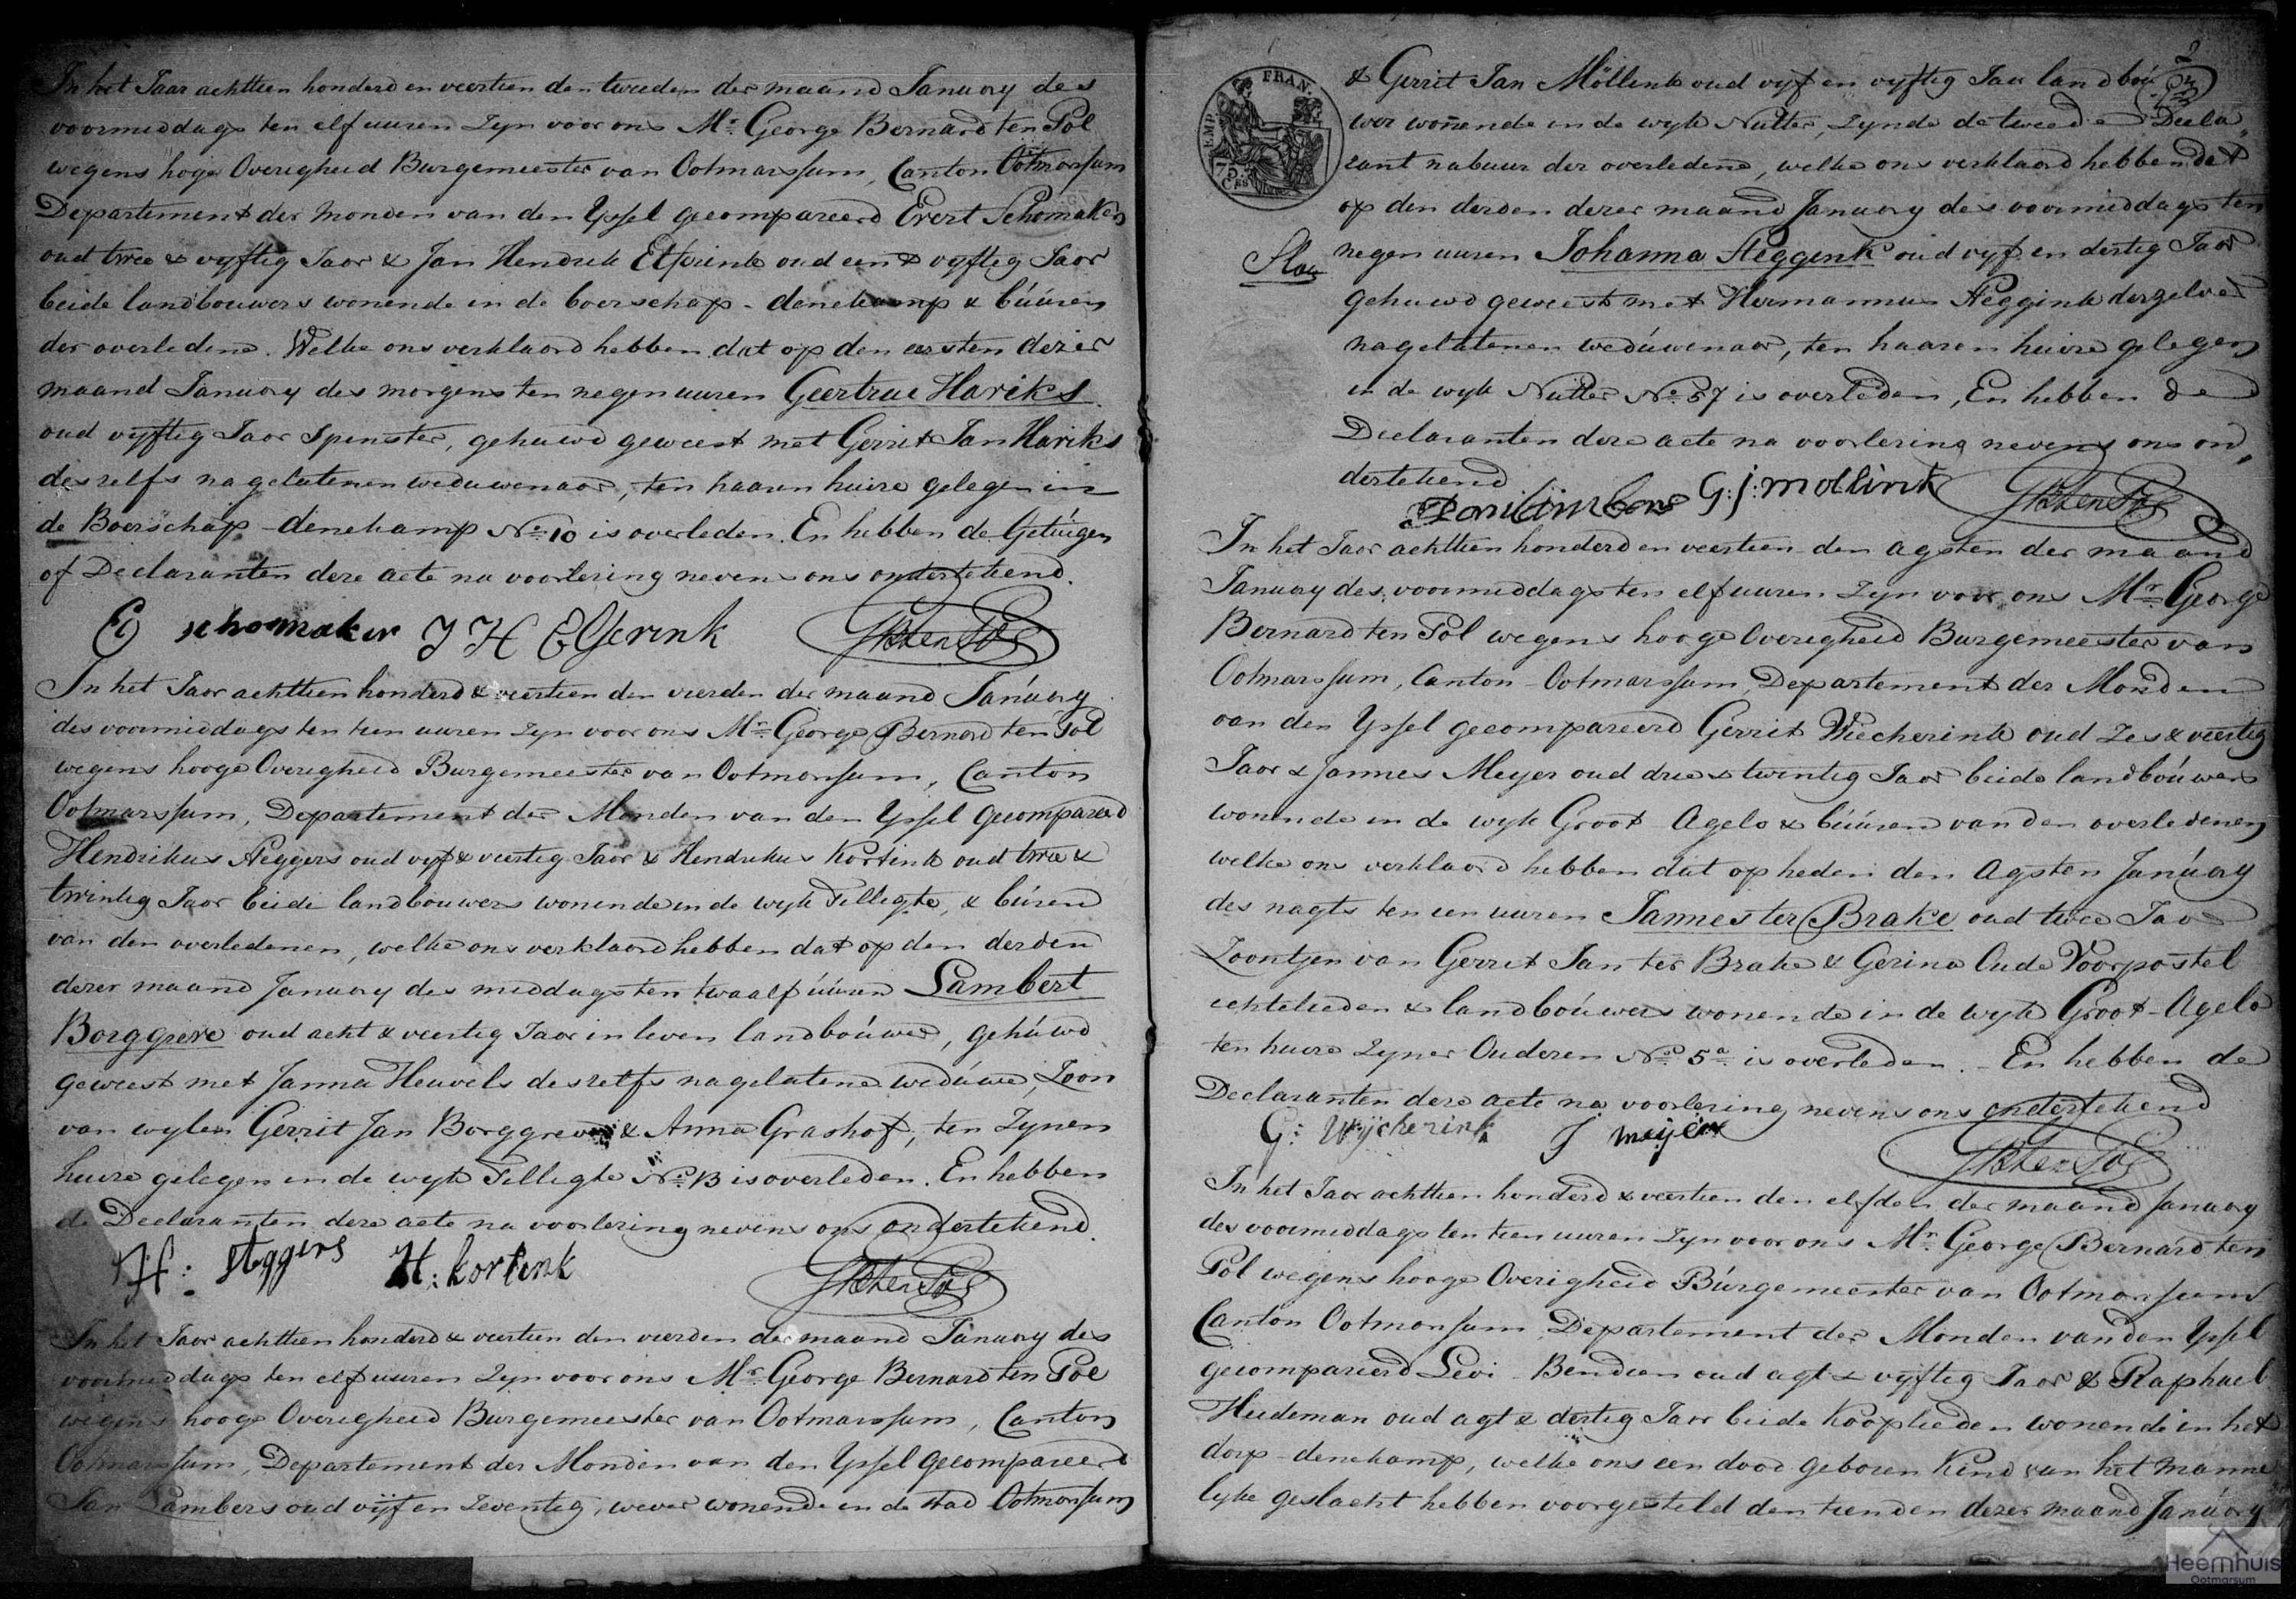 In het Jaar achttien honderd en veertien den tweeden der maand January des
voormiddags ten elf uuren Zyn voor ons Mr. George Bernard ten Pol
wegens hoge Overigheid Burgemeester van Ootmarssum, Canton Ootmarssum
Departement der Monden van den Yssel gecompareerd Evert Schomaker
oud twee & vyftig Jaar & Jan Hendrik Elferink oud een & vyftig Jaar
beide landbouwers wonende in de boerschap denekamp & búúren
der overledene. Welke ons verklaard hebben dat op den eersten dezer
maand January des morgens ten negen uuren Geertrue Hariks
oud vyftig Jaar Spinster, gehuwd geweest met Gerrit Jan Hariks
deszelfs nagelatenen weduwenaar, ten haaren huize gelegen in
de Boerschap denekamp No. 10 is overleden. En hebben de Getúigen
of Declaranten deze acte na voorlezing nevens ons ondertekend.
E schomaker J H Elferink GBtenPol
In het Jaar achttien honderd & veertien den vierden der maand Janúary
des voormiddags ten tien uuren Zyn voor ons Mr. George Bernard ten Pol
wegens hooge Overigheid Burgemeester van Ootmarssum, Canton
Ootmarssum, Departement der Monden van den Yssel gecompareerd
Hendrikus Steggers oud vyf & veertig Jaar & Hendrikus Kortink oud twee &
twintig Jaar beide landbouwers wonende in de wyk Tilligte, & búren
van den overledenen, welke ons verklaard hebben dat op den derden
dezer maand January des middags ten twaalf úúren Lambert
Borggreve oud acht & veertig Jaar in leven landboúwer, gehúwd
geweest met Janna Heuvels deszelfs nagelatene wedúwe, Zoon
van wylen Gerrit Jan Borggreve & Anna Grashof, ten Zynen
huize gelegen in de wyk Tilligte No. 13 is overleden. En hebben
de Declaranten deze acte na voorlezing nevens ons ondertekend.
H: steggers H: kortink GBtenPol
In het Jaar achttien honderd & veertien den vierden der maand January des
voormiddags ten elf uuren Zyn voor ons Mr. George Bernard ten Pol
wegens hooge Overigheid Burgemeester van Ootmarssum, Canton
Ootmarssum, Departement der Monden van den Yssel gecompareerd
Jan Lambers oud vijf en Zeventig, wever wonende in de stad Ootmarssum
2
EMP. FRAN.
75 Ces
& Gerrit Jan Möllink oud vyf en vyftig Jaar landboú
wer wonende in de wyk Nutter, Zynde de tweede Decla
rant nabuur der overledene, welke ons verklaard hebben dat
op den derden dezer maand January des voormiddags ten
negen uuren Johanna Steggink oud vyf en dertig Jaar
gehuwd geweest met Hermannus Steggink dezzelver
nagelatenen wedúwenaar, ten haaren huize gelegen
in de wyk Nutter No. 57 is overleden, En hebben de
Declaranten deze acte na voorlezing nevens ons on,
dertekend
G: j: mollink GBtenPol
In het Jaar achttien honderd en veertien den agsten der maand
January des voormiddags ten elf uuren Zyn voor ons Mr. George
Bernard ten Pol wegens hooge Overigheid Burgemeester van
Ootmarssum, Canton Ootmarssum, Departement der Monden
van den Yssel gecompareerd Gerrit Wiecherink oud Zes & veertig
Jaar & Jannes Meyer oud drie & twintig Jaar beide landboúwers
wonende in de wyk Groot Agelo & búúren van den overledenen
welke ons verklaard hebben dat op heden den Agsten Janúary
des nagts ten een uuren Jannes ter Brake oud twee Jaar
Zoontjen van Gerrit Jan ter Brake & Gerina Oude Voorpostel
echtelieden & landboúwers wonende in de wyk Groot-Agelo
ten huize Zyner Ouderen No. 5a is overleden. En hebben de
Declaranten deze acte na voorlezing nevens ons ondertekend
G: Wijcherink J meijer GBtenPol
In het Jaar achttien honderd & veertien den elfden der maand January
des voormiddags ten tien uuren Zyn voor ons Mr. George Bernard ten
Pol wegens hooge Overigheid Búrgemeester van Ootmarssum
Canton Ootmarssum, Departement der Monden van den Yssel
gecompareerd Levi Bendien oud agt & vyftig Jaar & Raphael
Hiedeman oud agt & dertig Jaar beide Kooplieden wonende in het
dorp denekamp, welke ons een dood geboren Kind van het manne
lyke geslacht hebben voorgesteld den tienden dezer maand Janúary
Heemhuis
Ootmarsum